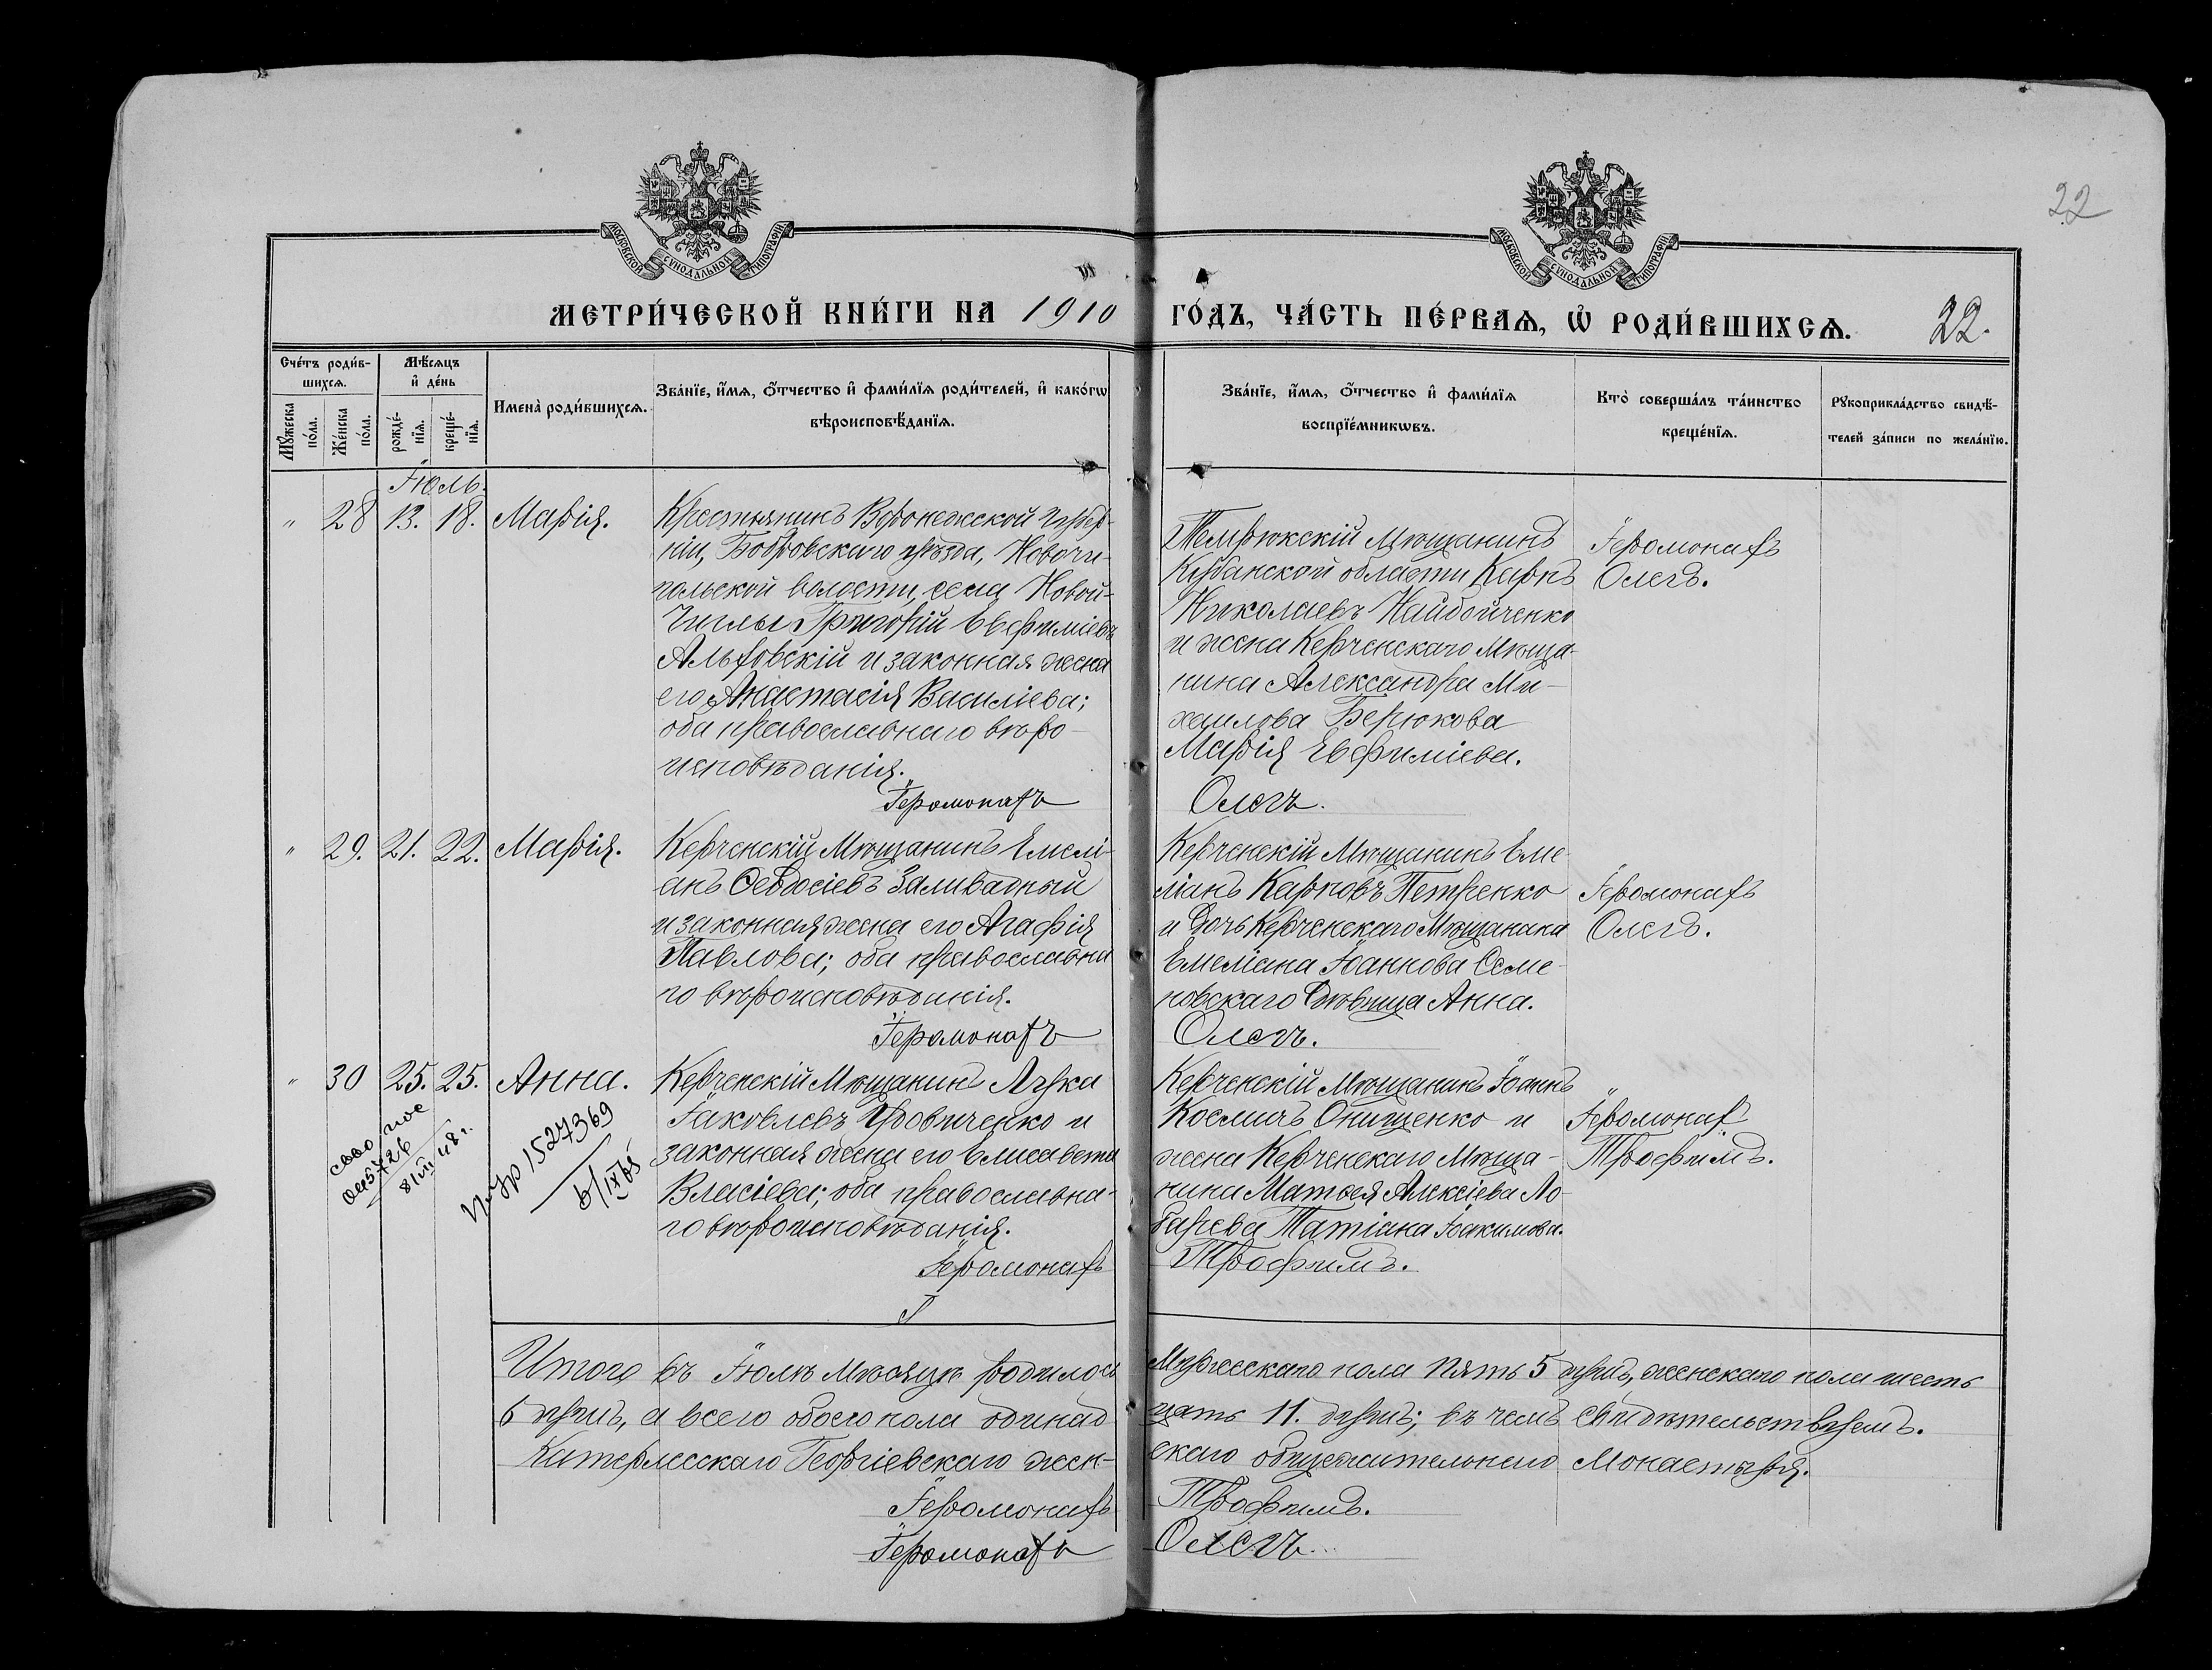 22
МОСКОВСКОЙ СѴНОДАЛЬНОЙ ТИПОГРАФІИ
МОСКОВСКОЙ СѴНОДАЛЬНОЙ ТИПОГРАФІИ
МЕТРИ́ЧЕСКОЙ КНИ́ГИ НА 1910 ГО́ДЪ, ЧА́СТЬ ПЕ́РВАѦ, Ѡ҆ РОДИ́ВШИХСѦ. 22.
Сче́тъ роди́в-
шихсѧ.
Мꙋ́жеска по́ла.
Же́нска по́ла.
Мѣ́сѧцъ
и҆ де́нь
рожде́-
нїѧ.
креще́-
нїѧ.
Имена̀ роди́вшихсѧ.
Зва́нїе, и҆́мѧ, ѻ҆́тчество и҆ фами́лїѧ роди́телей, и҆ како́гѡ
вѣроисповѣ́данїѧ.
Зва́нїе, и҆́мѧ, ѻ҆́тчество и҆ фами́лїѧ
воспрїе́мникѡвъ.
Кто̀ соверша́лъ та́инство
креще́нїѧ.
Рꙋкоприкла́дство свидѣ́-
телей за́писи по жела́нїю.
Іюль.
" 28 13. 18. Марія.
Крестьянинъ Воронежской губер-
ніи, Бобровскаго уѣзда, Новочи-
гольской волости, села Новой-
Чиглы Григорій Евфиміевъ
Альховскій и законная жена
его Анастасія Василіева;
оба православнаго вѣро-
исповѣданія.
Іеромонахъ
Темрюкскій мѣщанинъ
Кубанской области Карпъ
Николаевъ Найдойченко
и жена Керченскаго мѣща-
нина Александра Ми-
хаилова Берюкова
Марія Евфиміева.
Олегъ.
Іеромонахъ
Олегъ.
" 29. 21. 22. Марія.
Керченскій Мѣщанинъ Емелі-
анъ Ѳеодосіевъ Заливадный
и законная жена его Агафія
Павлова; оба православна
го вѣроисповѣданія.
Іеромонахъ
Керченскій Мѣщанинъ Еме-
ліанъ Карповъ Петренко
и дочь Керченскаго Мѣщанина
Емеліана Іоаннова Семе-
новскаго дѣвица Анна.
Олегъ.
Іеромонахъ
Олегъ.
" 30 25. 25. Анна.
Керченскій Мѣщанинъ Лука
Іаковлевъ Удовиченко и
законная жена его Елисавета
Власіева; оба православна-
го вѣроисповѣданія.
Іеромонахъ
Керченскій Мѣщанинъ Іоаннъ
Космичъ Онищенко и
жена Керченскаго Мѣща-
нина Матѳея Алексіева Ло-
барева Татіана Іоакимова.
Трофимъ.
Іеромонах
Трофимъ.
1527369
Итого въ Іюлѣ Мѣсяцѣ родилось Мужескаго пола пять 5 душъ, женскаго пола шесть
6 душъ, а всего обоего пола одинад цать 11. душъ; въ чемъ свидѣтельствуемъ.
Катерлесскаго Георгіевскаго жен- скаго общежительнаго Монастыря.
Іеромонахъ Трофимъ.
Іеромонахъ Олегъ.